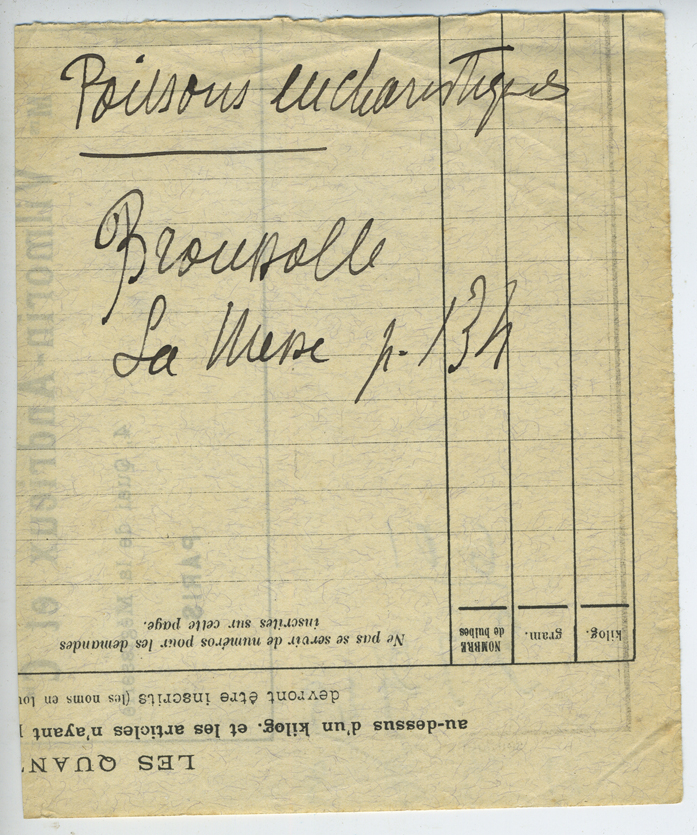 Poissons eucharistiques
Broussolle
La Messe p. 134
Ne pas se servir de numéros pour les demandes
inscrites sur cette page.
NOMBRE
de bulbes
gram.
kilog.
devront être inscrits (les noms en
au-dessus d'un kilog. et les articles n'ayant
LES QUAN
Vilmorin-Andrieux et C
4, Quai de la Mégisserie
PARIS